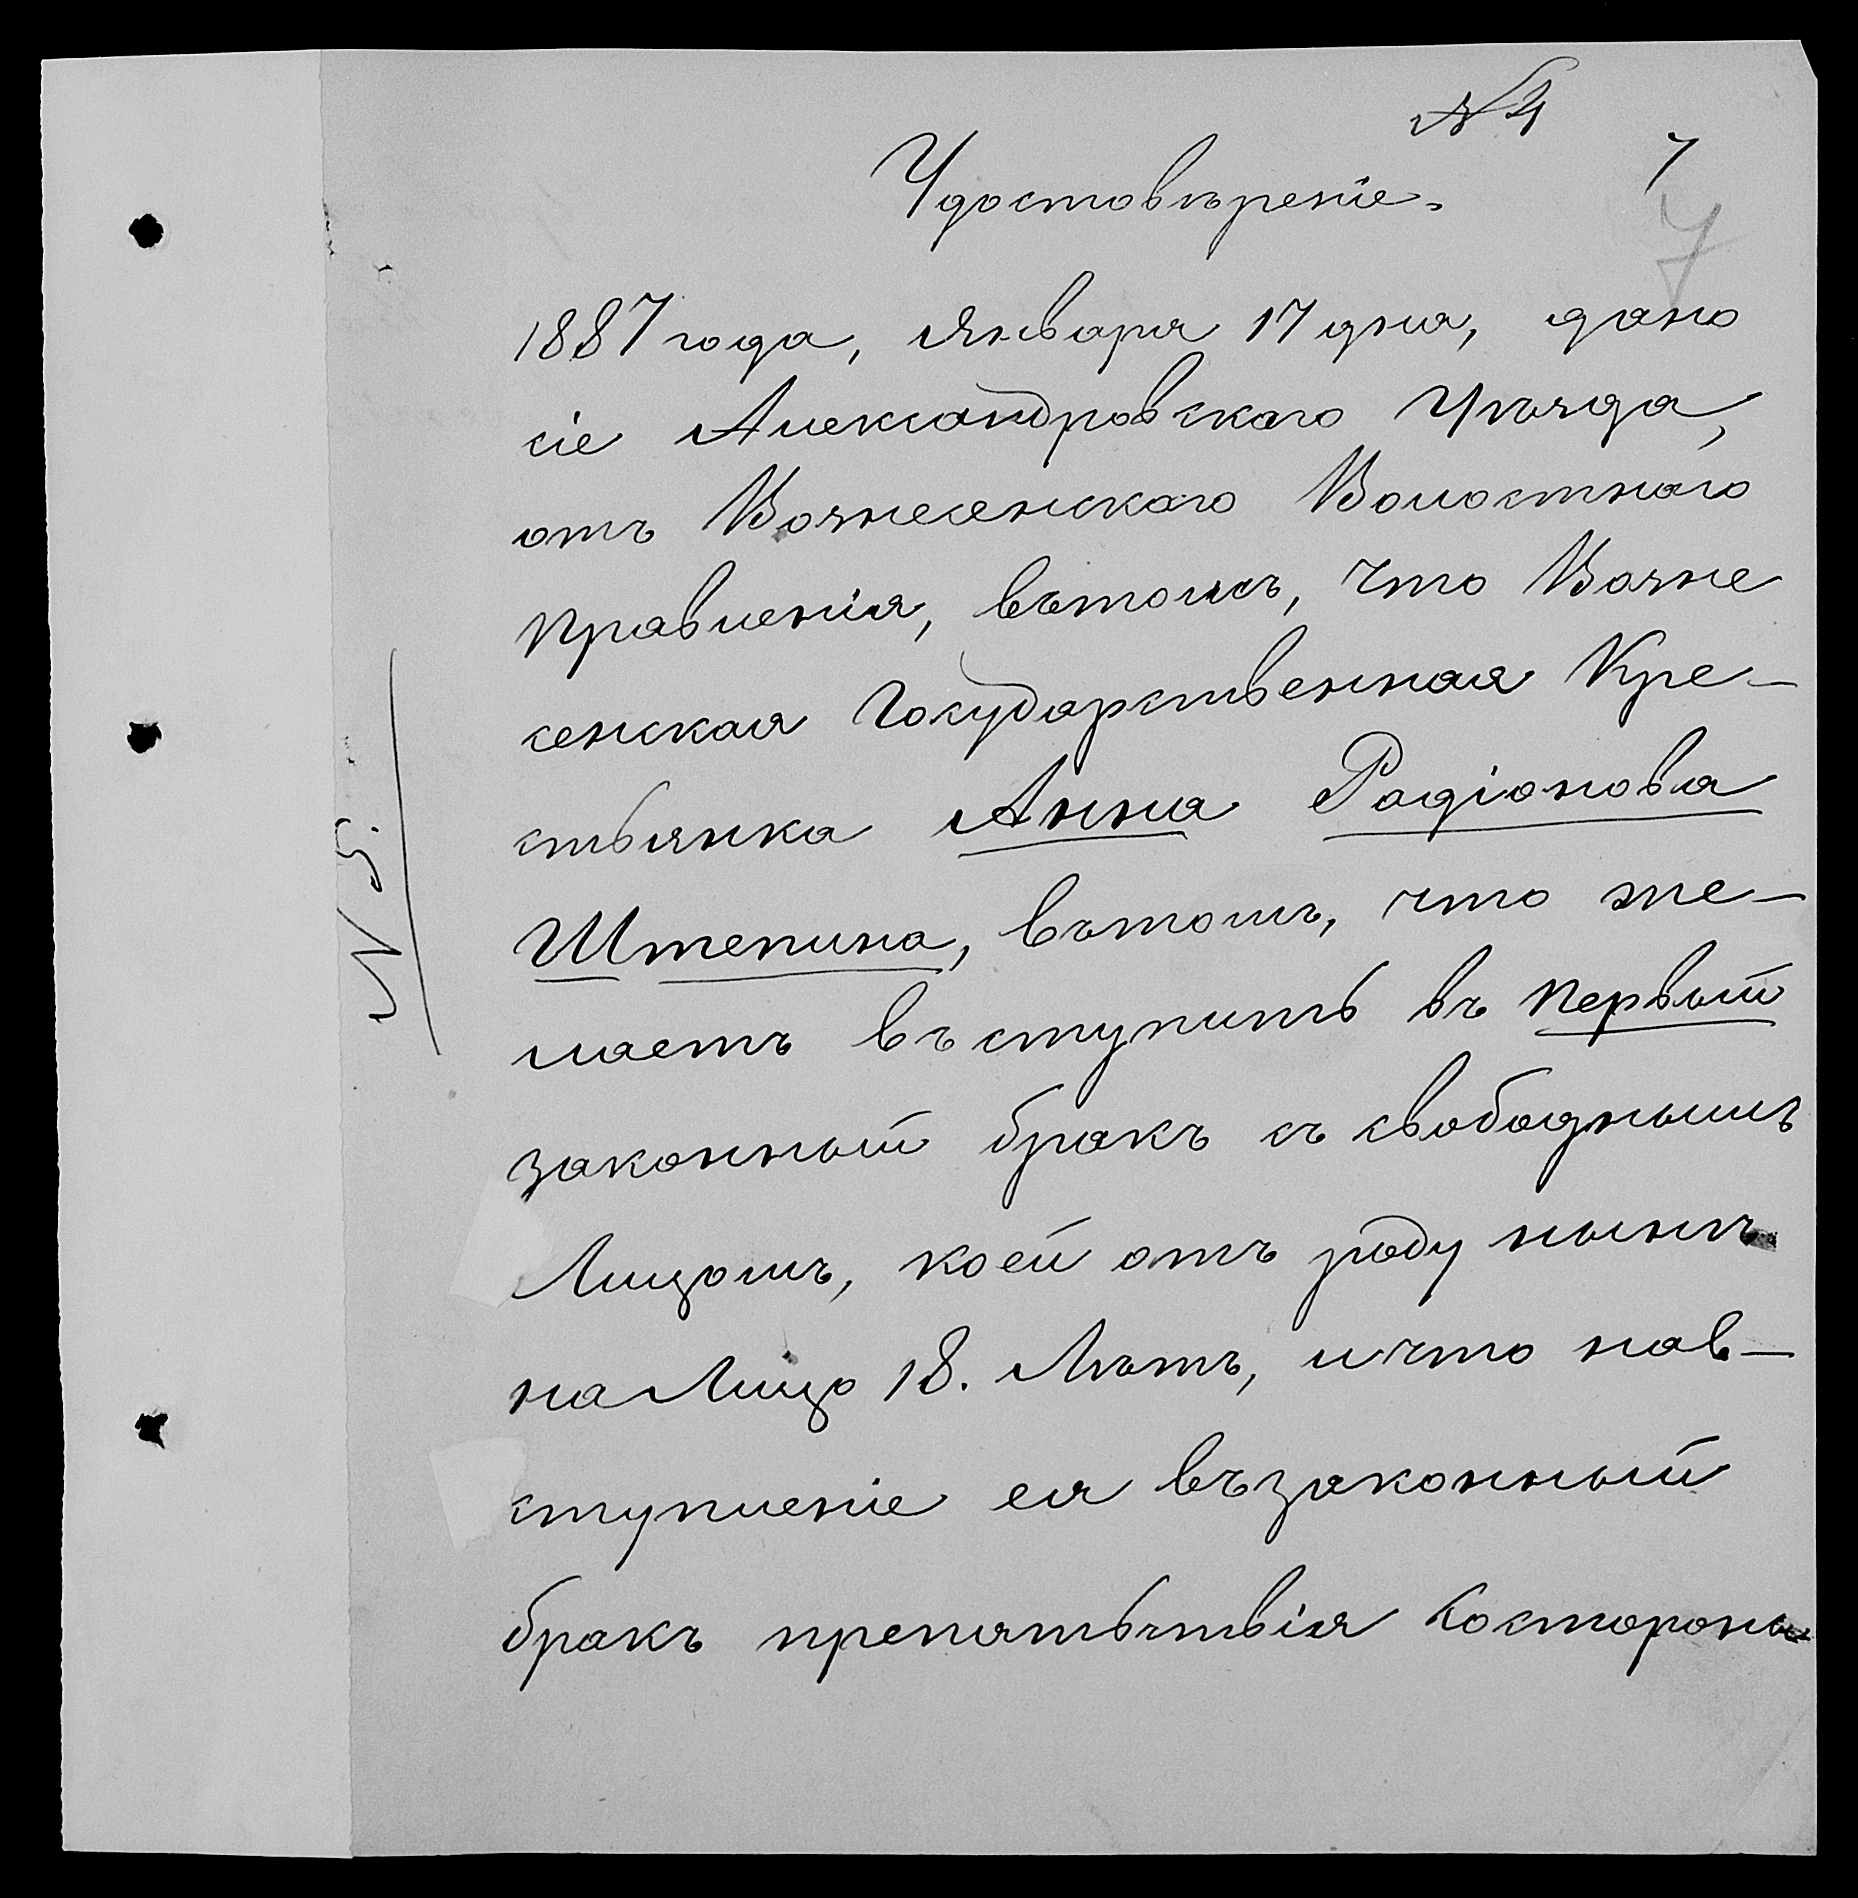 № 4
7
Удостовѣреніе.
7
1887 года, Января 17 дня, дано
сіе Александровскаго Уѣзда,
отъ Вознесенскаго Волостнаго
Правленія, вътомъ, что Возне
сенская Государственная Кре-
стьянка Анна Радіонова
Штепина, вътомъ, что же-
лаетъ въступить въ первый
законный бракъ съ свободнымъ
Лицомъ, коей отъ роду нынѣ
на Лицо 18. Лѣтъ, ичто нав-
ступленіе ея възаконный
бракъ препятьствія состороны
№ 5.